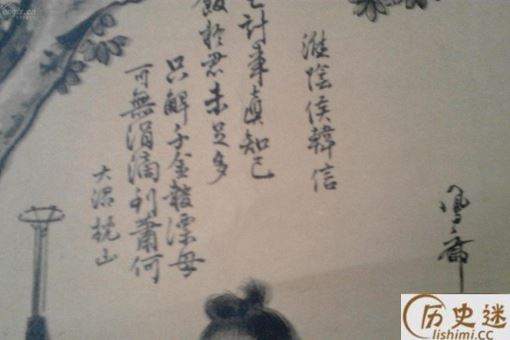 淮陰侯韓信
計事真知己
飯於君未足多
只解千金報漂母
可無涓滴到蕭何
大沼枕山
历史迷
lishimi.cc